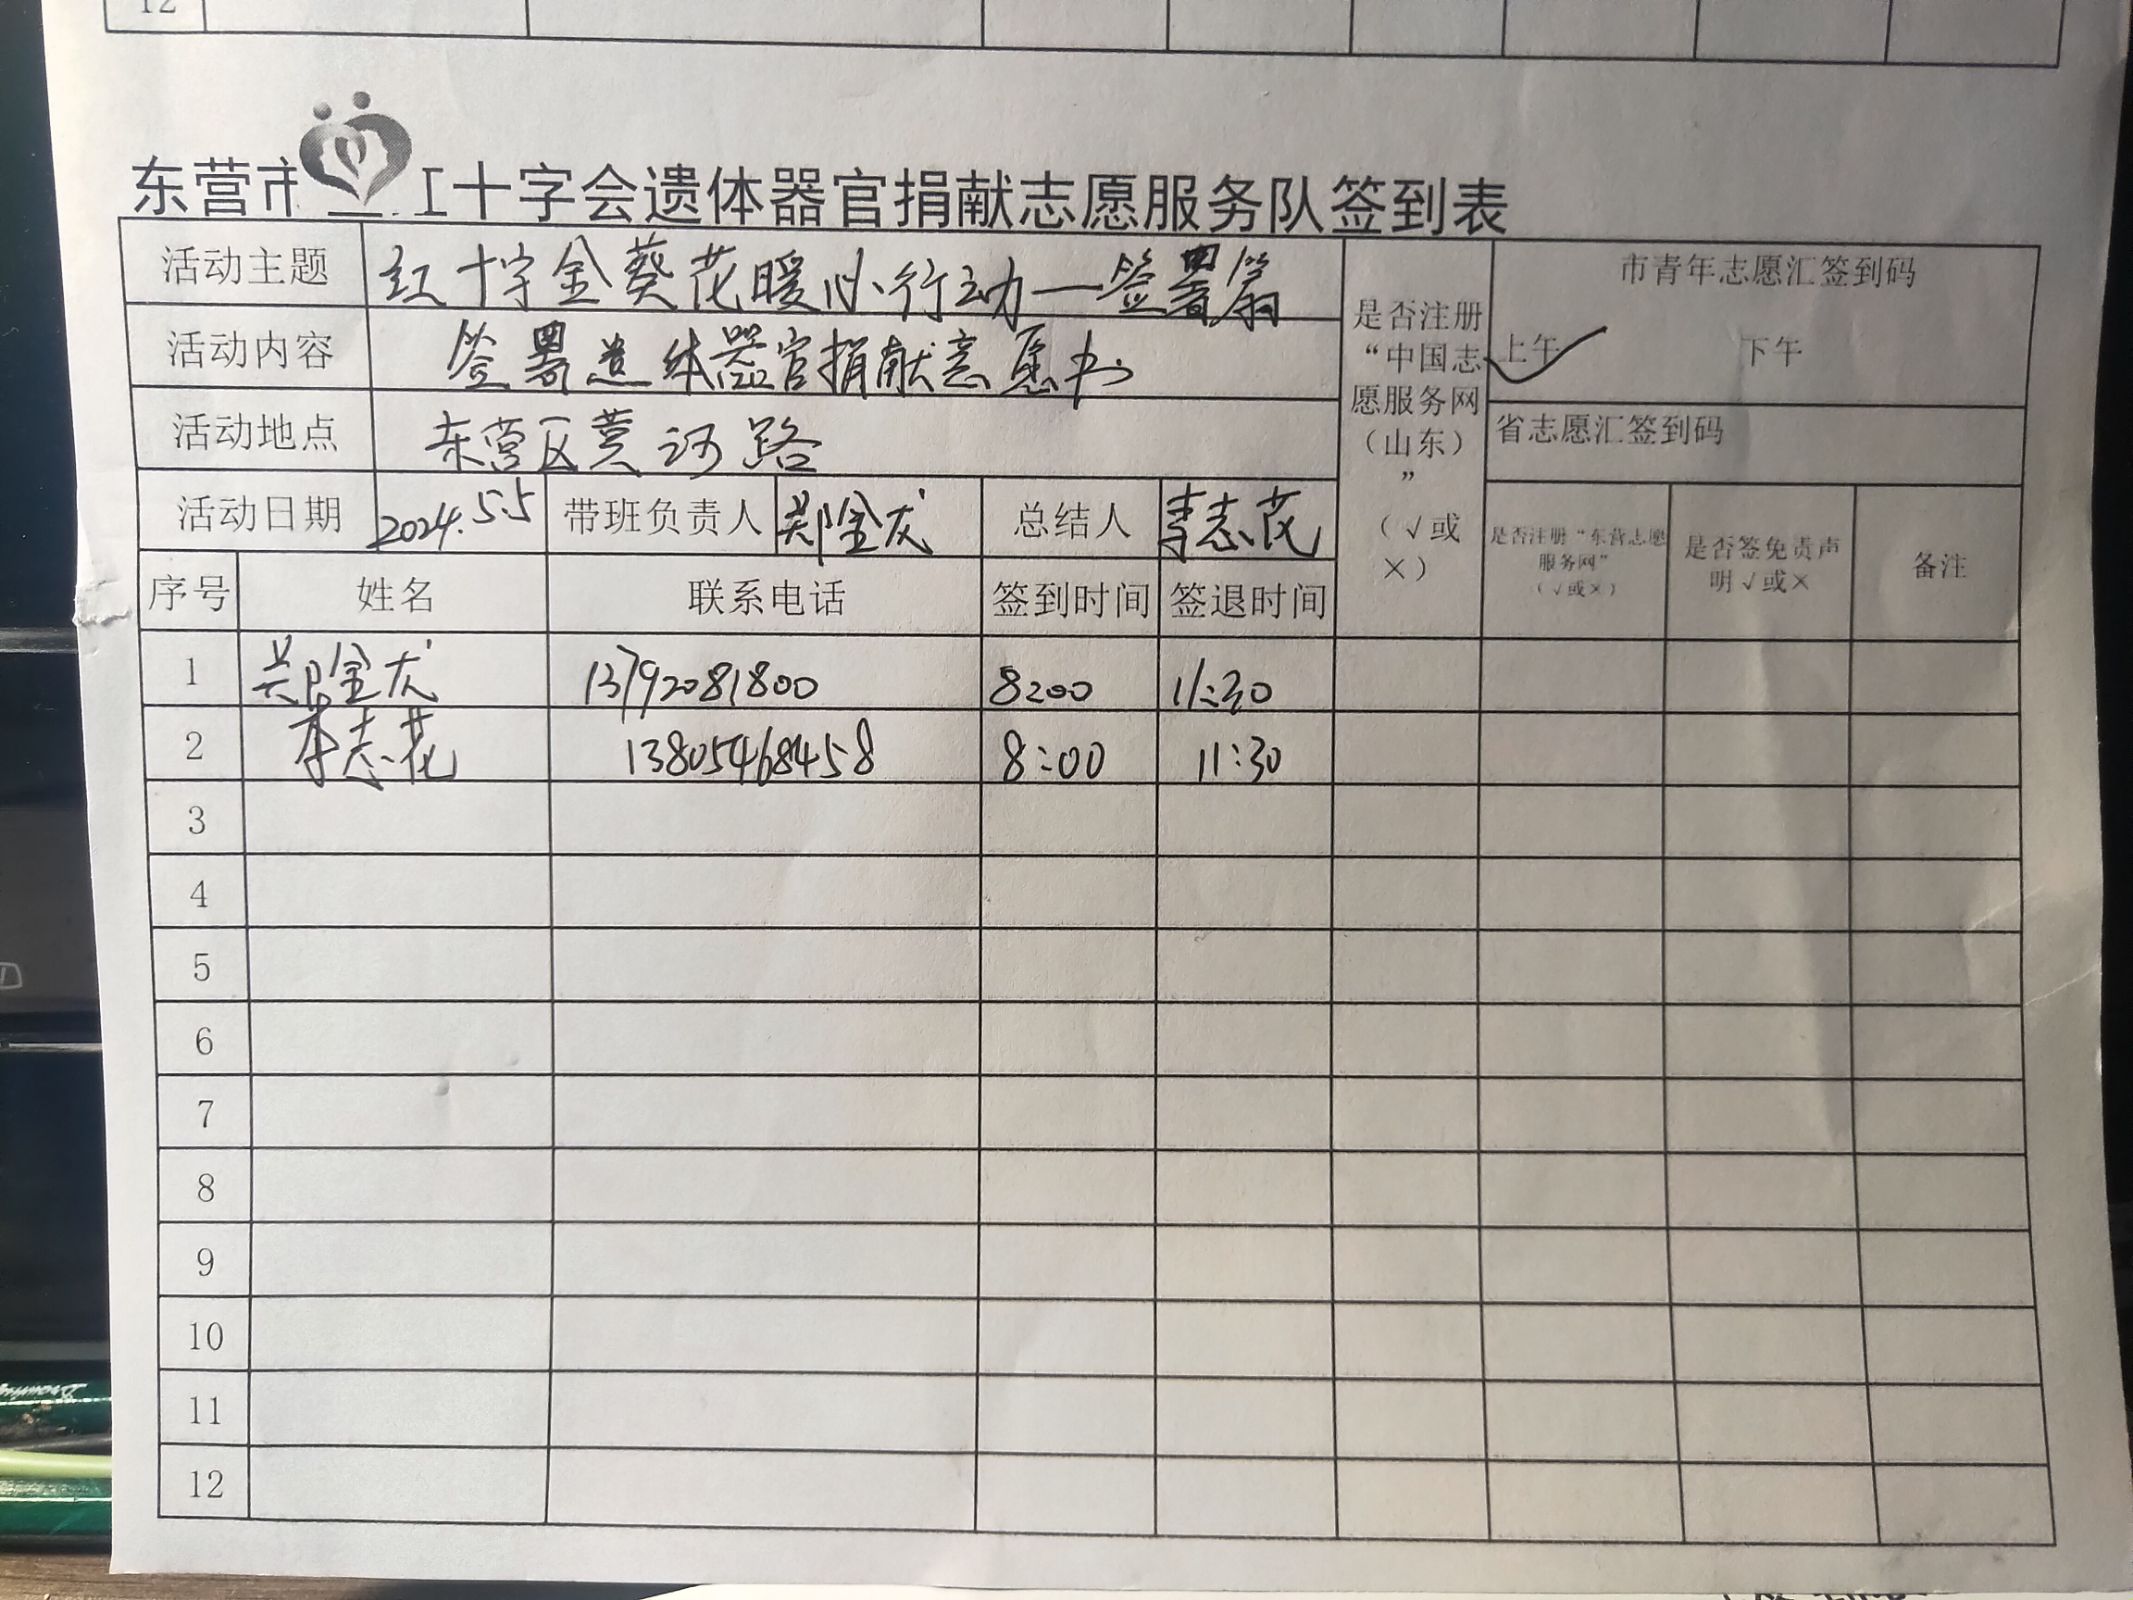 12
东营市 红十字会遗体器官捐献志愿服务队签到表
活动主题 红十字金葵花暖心行动—签署篇
活动内容 签署遗体器官捐献意愿书
活动地点 东营区黄河路
活动日期 2024.5.5 带班负责人 郑金庆 总结人 李志花
是否注册
“中国志
愿服务网
（山东）
”
（√或
×）
市青年志愿汇签到码
上午 ✓ 下午
省志愿汇签到码
是否注册“东营志愿
服务网”
（√或×）
是否签免责声
明√或×
备注
序号 姓名 联系电话 签到时间 签退时间
1 郑金庆 13792081800 8:00 11:30
2 李志花 13805468458 8:00 11:30
3
4
5
6
7
8
9
10
11
12